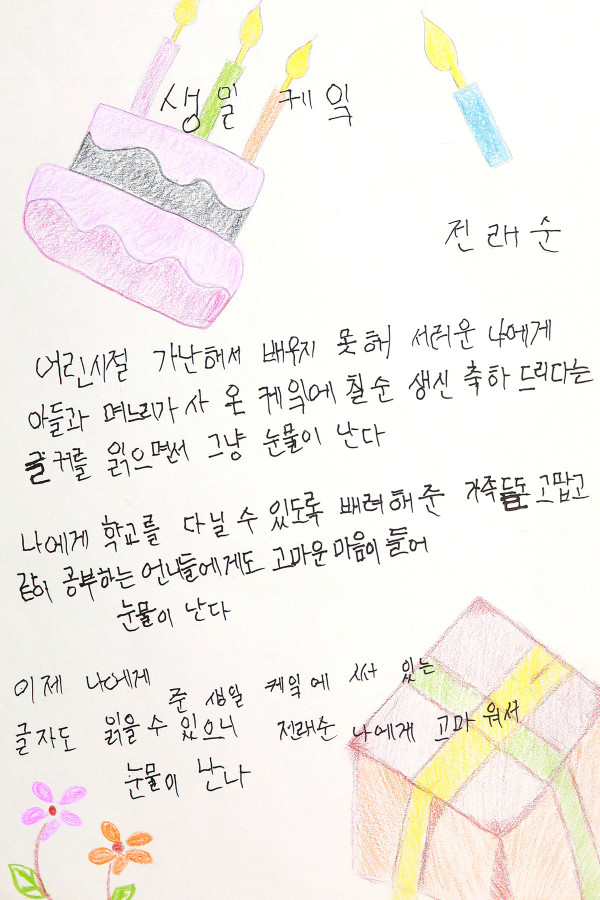 생일 케익
전래순
어린시절 가난해서 배우지 못해 서러운 나에게
아들과 며느리가 사 온 케익에 칠순 생신 축하 드리다는
글커를 읽으면서 그냥 눈물이 난다
나에게 학교를 다닐 수 있도록 배려해 준 가족들도 고맙고
같이 공부하는 언니들에게도 고마운 마음이 들어
눈물이 난다
이제 나에게 준 생일 케익에 써 있는
글자도 읽을 수 있으니 전래순 나에게 고마 워서
눈물이 난나